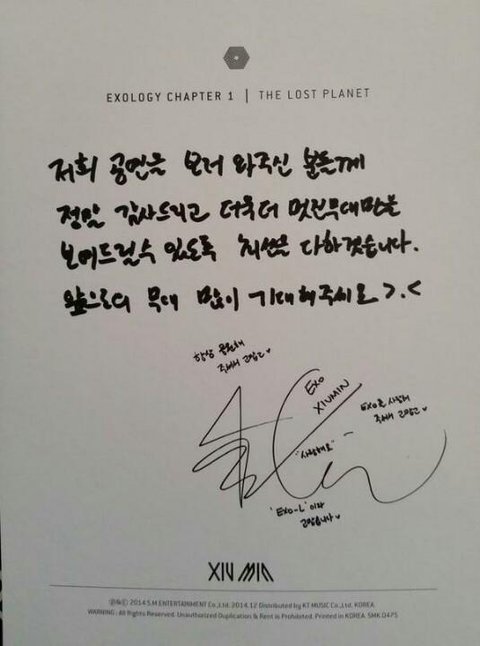 EXOLOGY CHAPTER 1 | THE LOST PLANET
저희 공연을 보러 와주신 분들께
정말 감사드리고 더욱더 멋진무대만을
보여드릴수 있도록 최선을 다하겠습니다.
앞으로의 무대 많이 기대해주세요 >.<
항상 응원해
주셔서 고맙고♥
EXO
XIUMIN
EXO를 사랑해
주셔서 고맙고♥
"사랑해요"
'EXO-L'이라
고맙습니다♥
XIUMIN
℗&© 2014 S.M.ENTERTAINMENT Co.,Ltd. 2014.12 Distributed by KT MUSIC Co.,Ltd. KOREA
WARNING : All Rights Reserved. Unauthorized Duplication & Rent is Prohibited. Printed in KOREA. SMK 0475